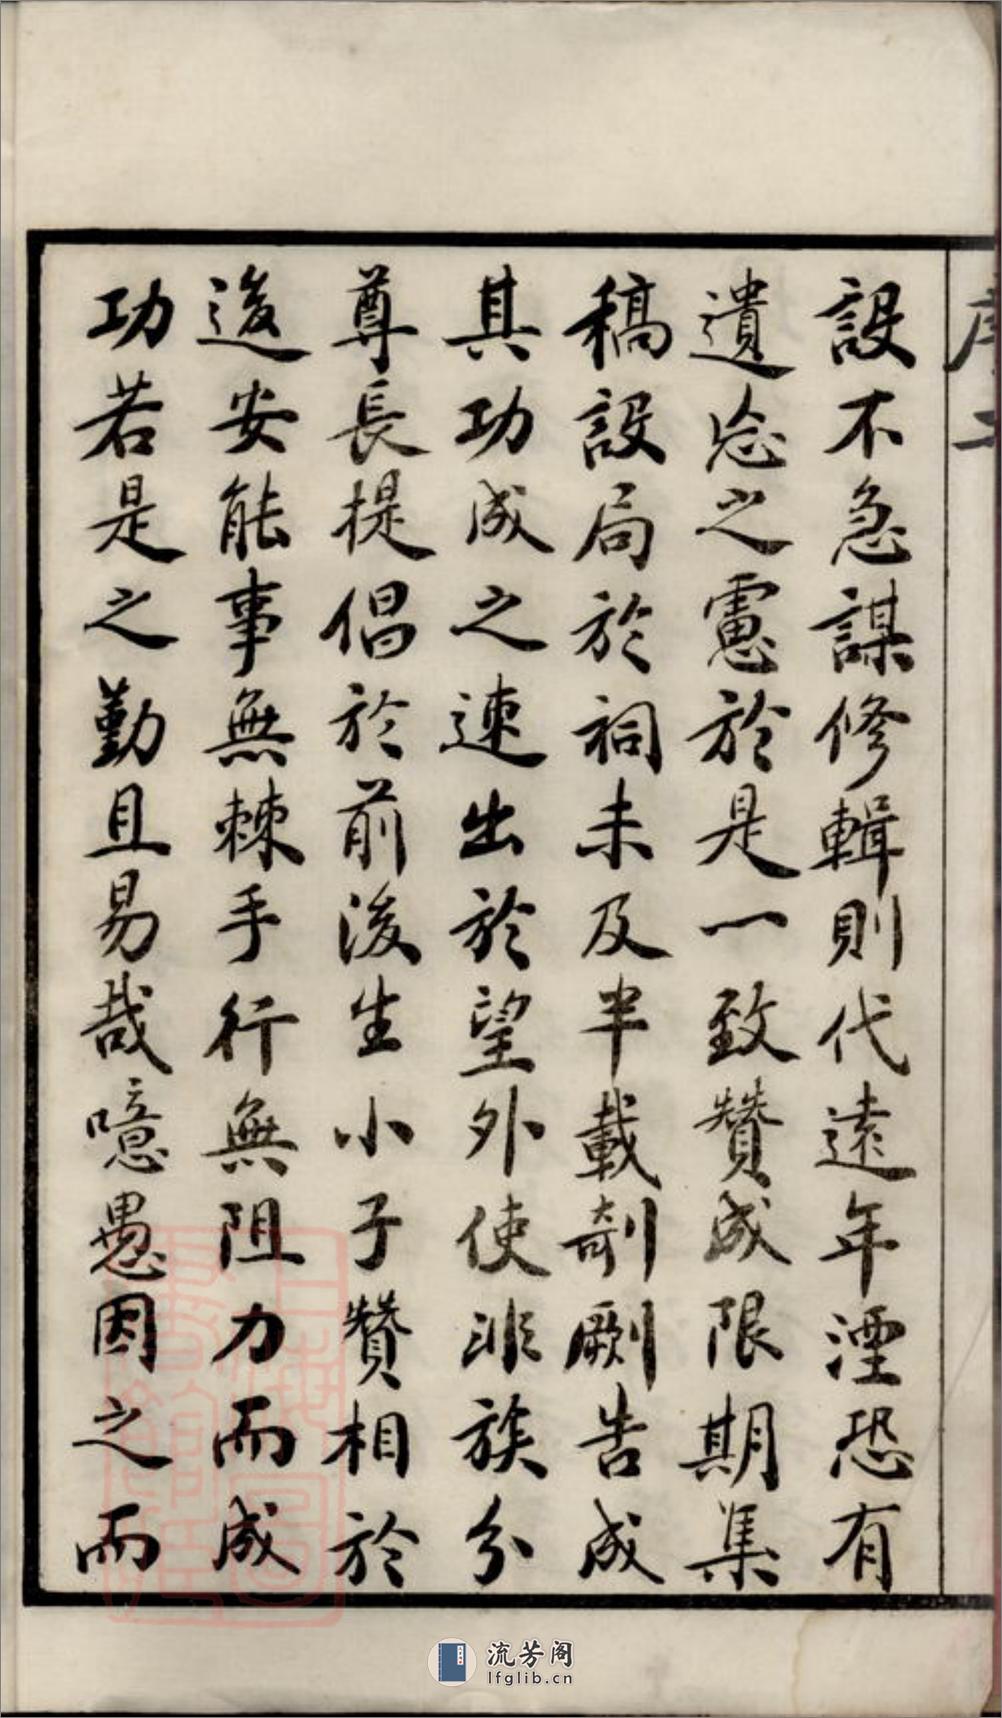 設不急謀修輯則代遠年湮恐有
遺忘之慮於是一致贊成限期集
稿設局於祠未及半載剞劂告成
其功成之速出於望外使非族分
尊長提倡於前後生小子贊相於
後安能事無棘手行無阻力而成
功若是之勤且易哉噫愚因之而
流芳阁
lfglib.cn